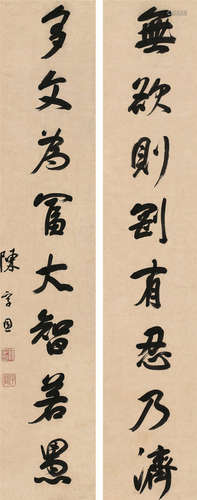 無欲則剛有忍乃濟
多文為富大智若愚
陳字恩